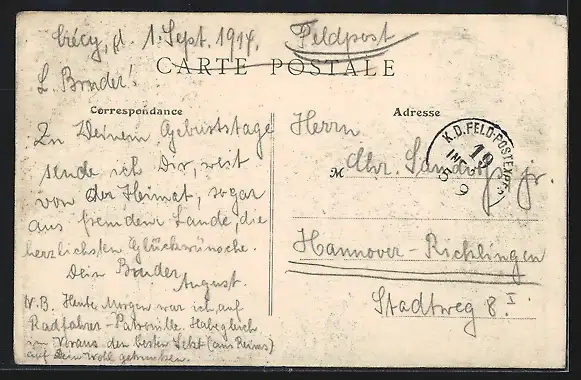 Crécy, d. 1. Sept. 1914.
Feldpost
CARTE POSTALE
L. Bruder!
Correspondance
Zu Deinem Geburtstage
sende ich Dir, weit
von der Heimat, sogar
aus fremdem Lande, die
herzlichsten Glückwünsche.
Dein Bruder
August.
N.B. Heute Morgen war ich auf
Radfahrer-Patrouille. Habe gleich
im Voraus den besten Sekt (aus Reims)
auf Dein Wohl getrunken.
Adresse
K.D. FELD-POSTEXPED.
19
INF.
5 9
Herrn
M Chr. jr.
Hannover-Ricklingen
Stadtweg 8. I